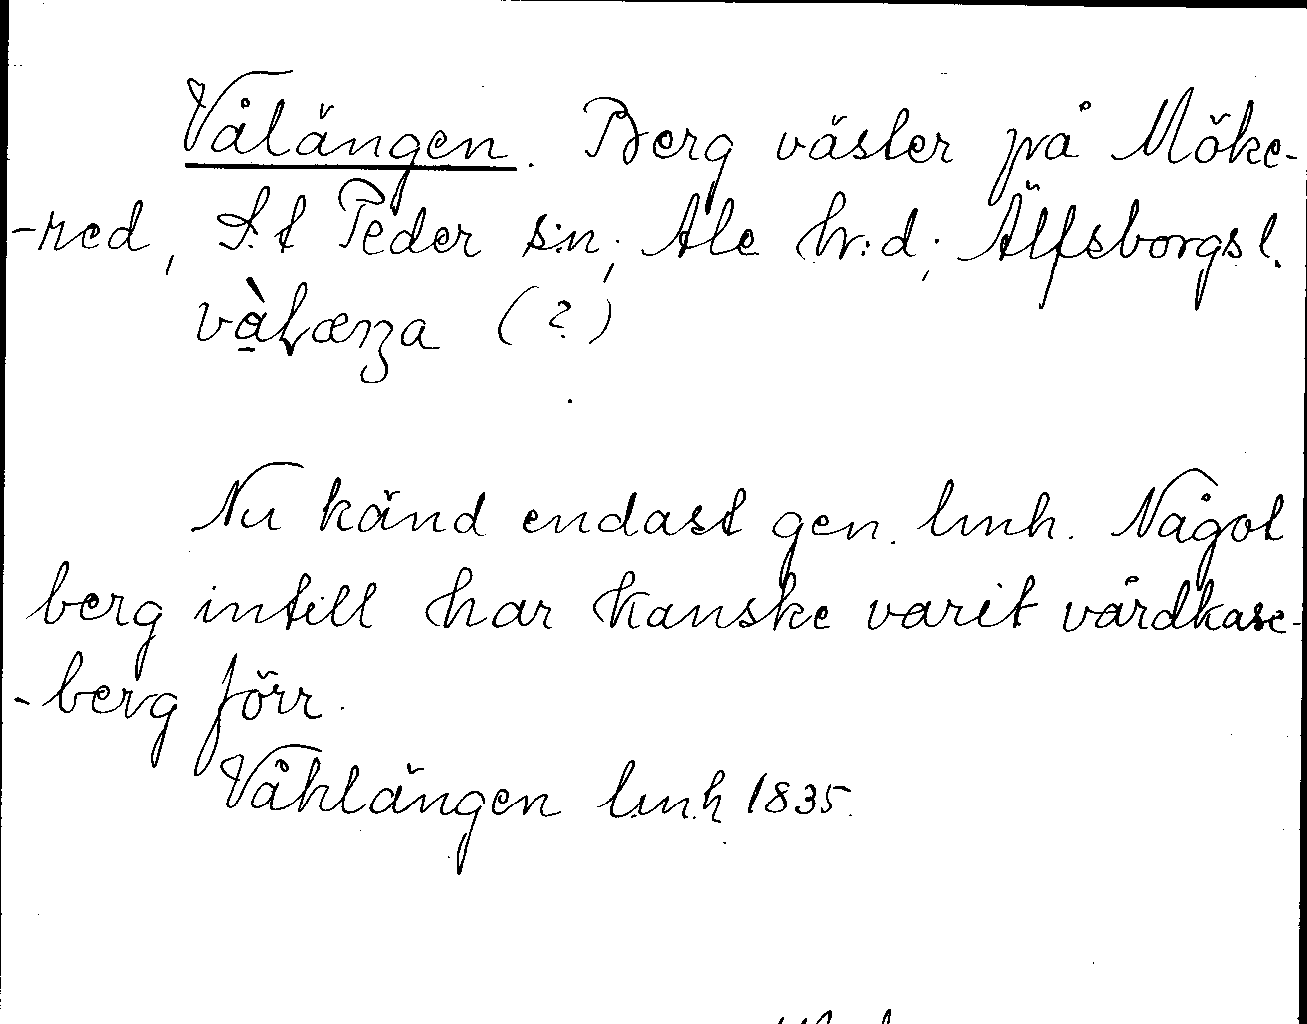 Vålängen. Berg väster på Möke-
-red, S:t Peder s:n; Ale hr:d; Älfsborgs l.
(?)
Nu känd endast gen. lmh. Något
berg intill har kanske varit vårdkase-
-berg förr.
Våhlängen lmh 1835.